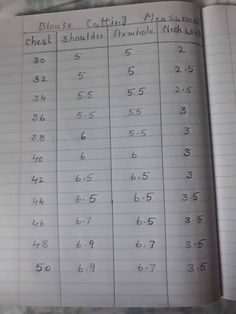 Blouse Cutting Measurement
Chest Shoulder Armhole Neck width
30 5 5 2
32 5 5 2.5
34 5.5 5.5 2.5
36 5.5 5.5 3
38 6 5.5 3
40 6 6 3
42 6.5 6.5 3
44 6.5 5.5 3.5
46 6.7 6.5 3.5
48 6.9 6.7 3.5
50 6.9 6.7 3.5